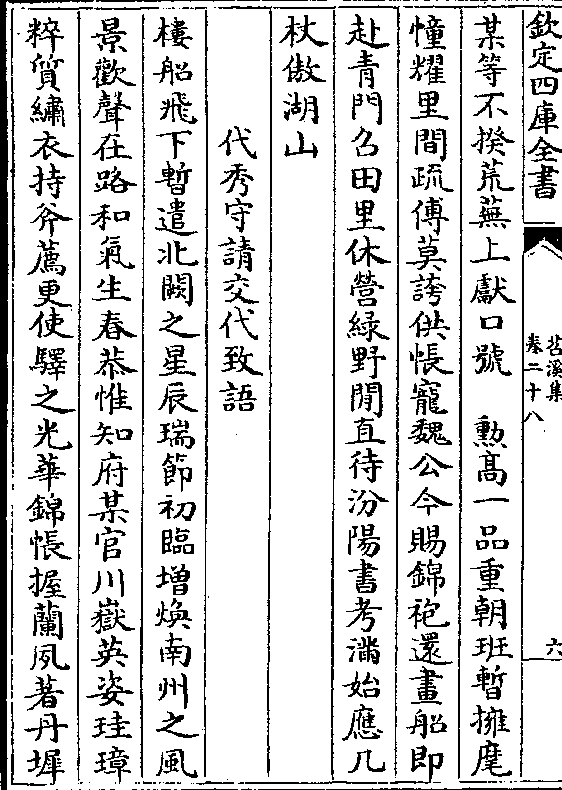 欽定四庫全書
苕溪集
卷二十八
六
某等不揆荒蕪上獻口號　勲髙一品重朝班暫擁麾
幢耀里閭疏傅莫誇供帳寵魏公今賜錦袍還畫船即
赴青門召田里休營緑野閒直待汾陽書考滿始應几
杖傲湖山
代秀守請交代致語
樓船飛下暫遣北闕之星辰瑞節初臨増煥南州之風
景歡聲在路和氣生春恭惟知府某官川嶽英姿珪璋
粹質繡衣持斧薦更使驛之光華錦帳握蘭夙著丹墀